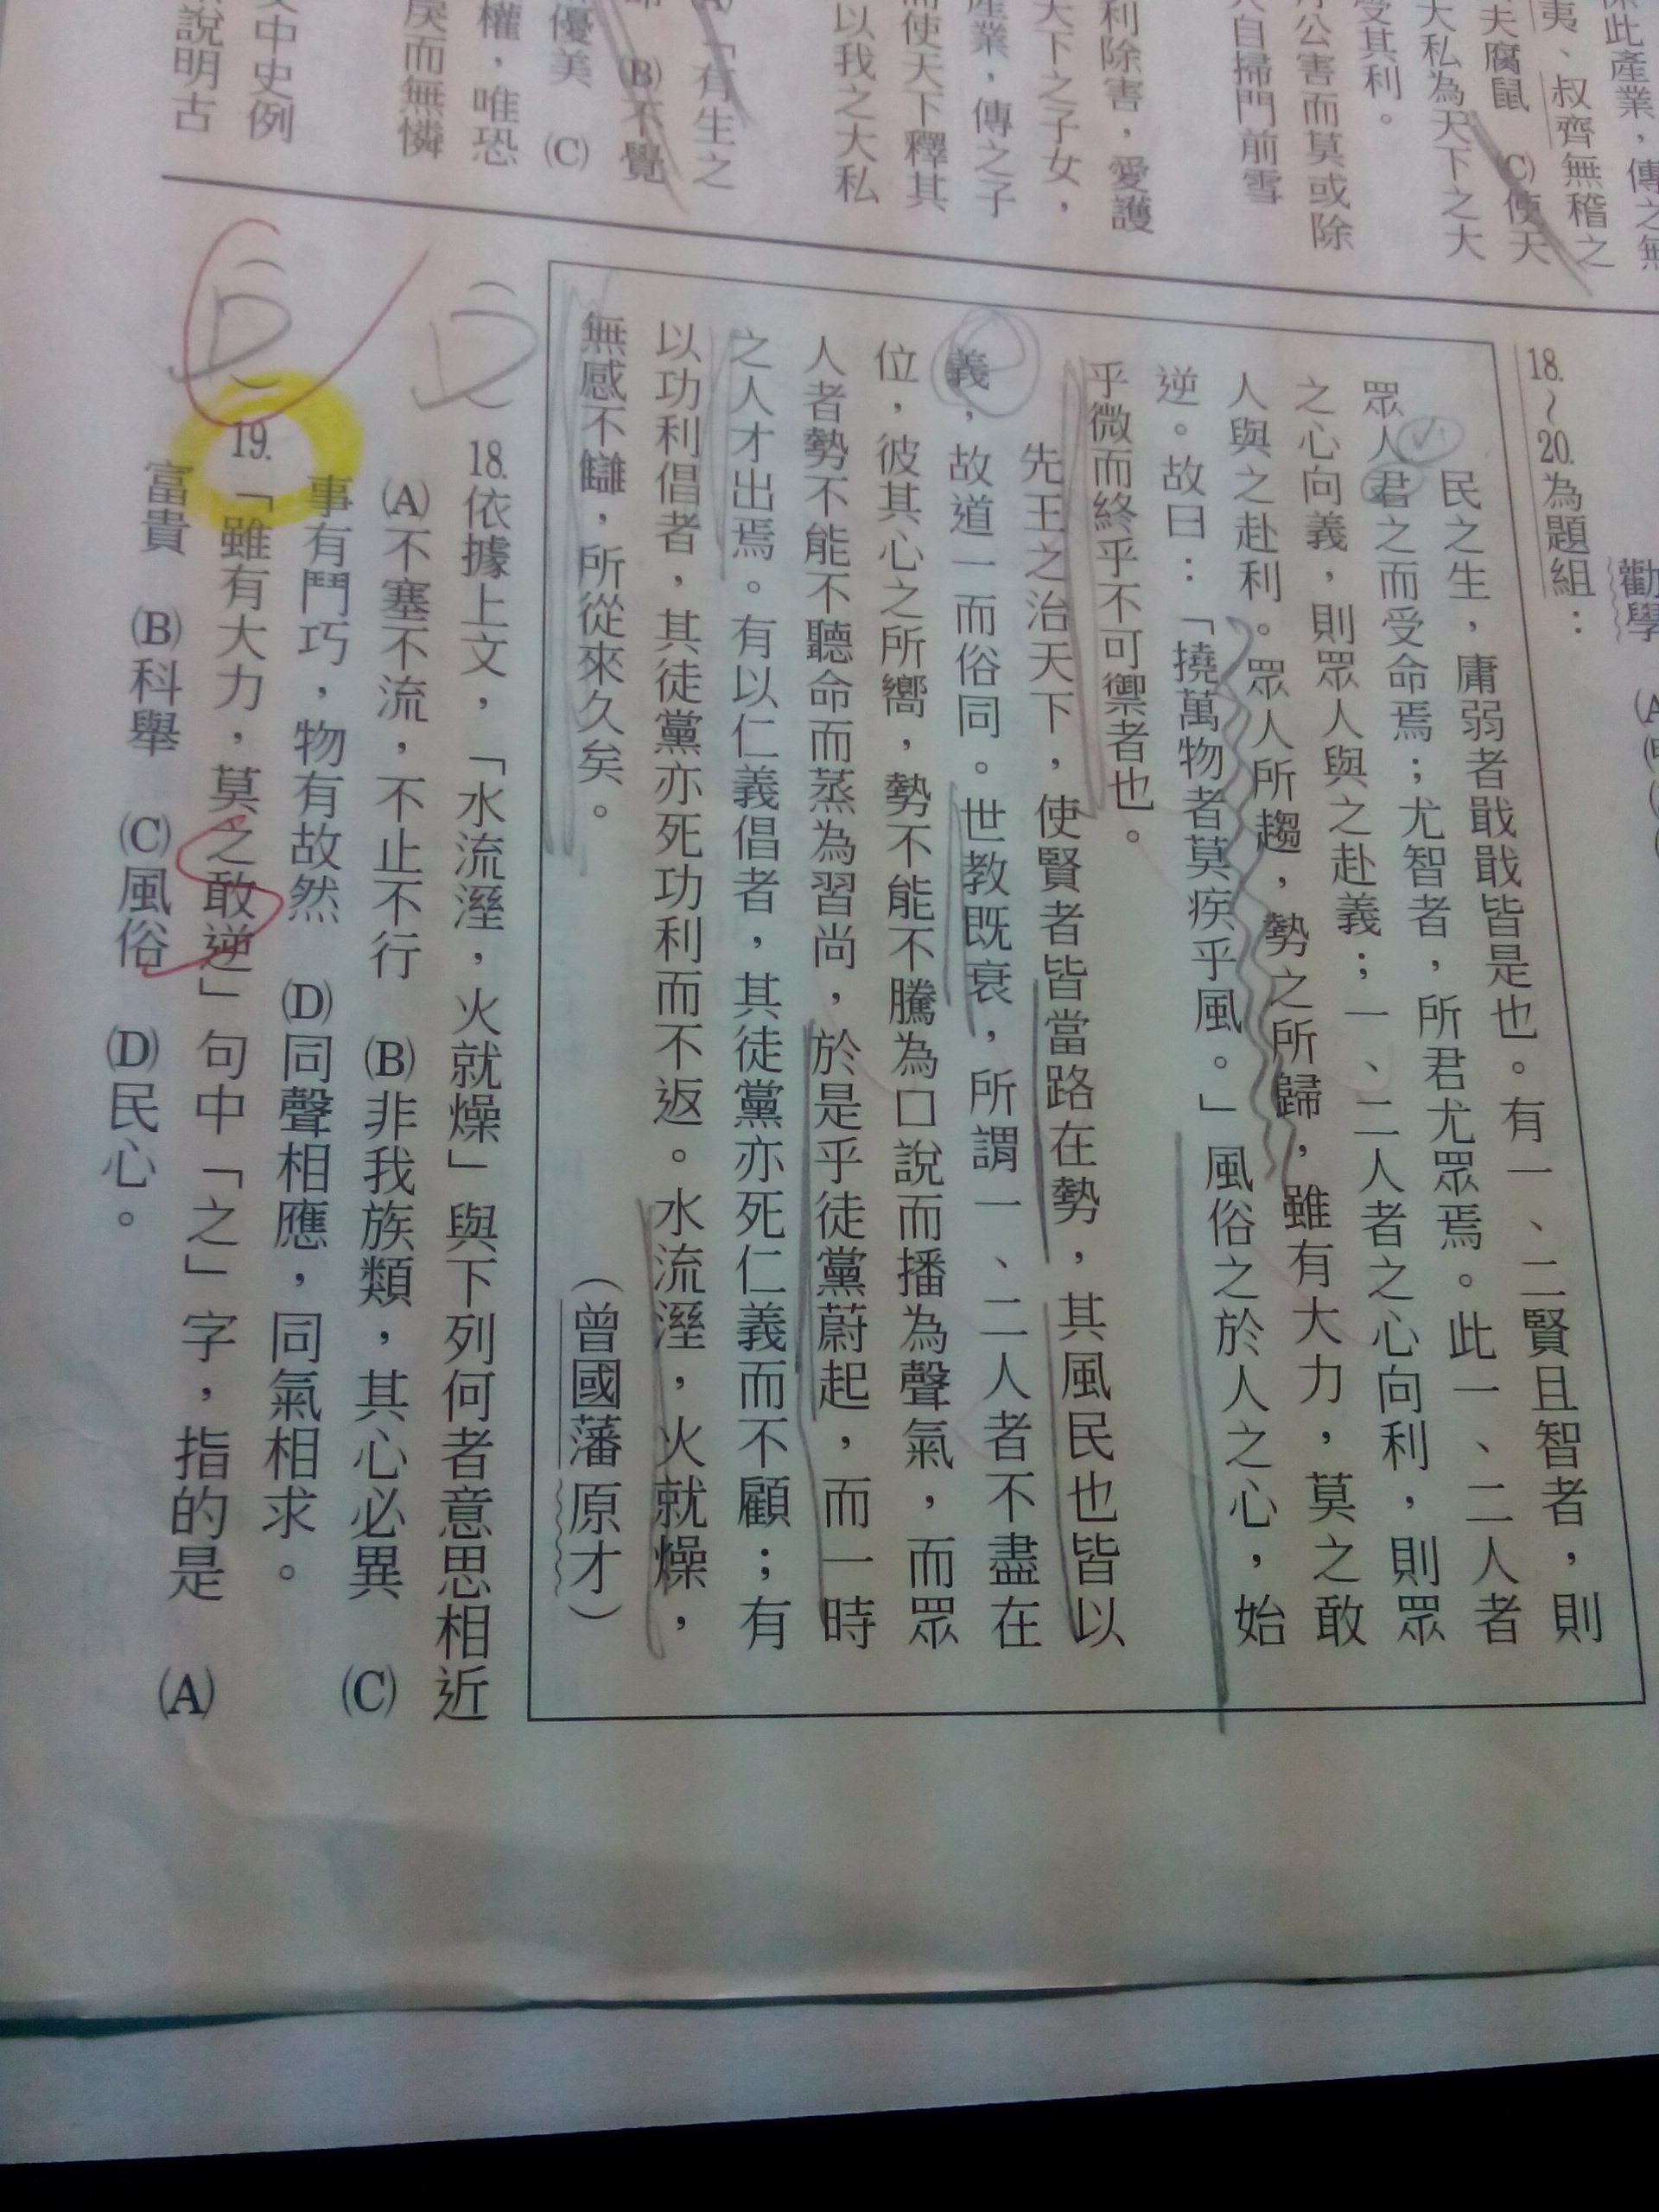 保此產業，傳之無
夷、叔齊無稽之
夫腐鼠 (C)使天
大私為天下之大
受其利。
公害而莫或除
自掃門前雪
利除害，愛護
天下之子女，
產業，傳之子
而使天下釋其
以我之大私
「有生之
(B)不覺
優美 (C)
權，唯恐
戾而無憐
文中史例
說明古
勸學
18.~20.為題組：
民之生，庸弱者戢戢皆是也。有一、二賢且智者，則
眾人君之而受命焉；尤智者，所君尤眾焉。此一、二人者
之心向義，則眾人與之赴義；一、二人者之心向利，則眾
人與之赴利。眾人所趨，勢之所歸，雖有大力，莫之敢
逆。故曰：「撓萬物者莫疾乎風。」風俗之於人之心，始
乎微而終乎不可禦者也。
先王之治天下，使賢者皆當路在勢，其風民也皆以
義，故道一而俗同。世教既衰，所謂一、二人者不盡在
位，彼其心之所嚮，勢不能不騰為口說而播為聲氣，而眾
人者勢不能不聽命而蒸為習尚，於是乎徒黨蔚起，而一時
之人才出焉。有以仁義倡者，其徒黨亦死仁義而不顧；有
以功利倡者，其徒黨亦死功利而不返。水流溼，火就燥，
無感不讎，所從來久矣。 （曾國藩原才）
(D) 18.依據上文，「水流溼，火就燥」與下列何者意思相近
(A)不塞不流，不止不行 (B)非我族類，其心必異 (C)
事有鬥巧，物有故然 (D)同聲相應，同氣相求。
(D) 19.「雖有大力，莫之敢逆」句中「之」字，指的是 (A)
富貴 (B)科舉 (C)風俗 (D)民心。